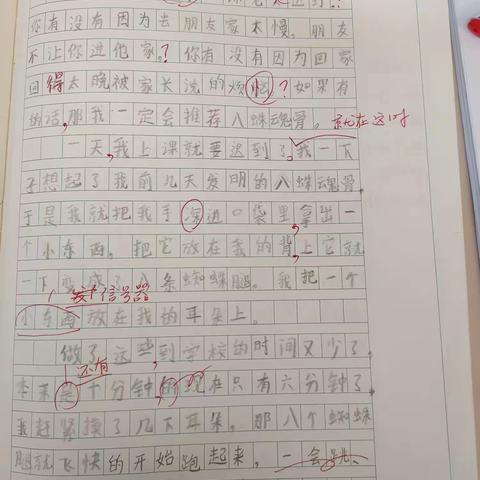 你有没有因为去朋友家太慢。朋友
不让你进他家?你有没有因为回家
回得太晚被家长说的烦恼?如果有
的话,那我一定会推荐八蛛魂骨。就在这时
一天,我上课就要迟到了,我一下
子想起了我前几天发明的八蛛魂骨。
于是我就把我手深进口袋里,拿出一
个小东西。把它放在我的背上,它就
一下变成了八条蜘蛛腿。我把一个
信号器
小东西放在我的耳朵上。
做了这些,到学校的时间又少了,
还有
本来是十分钟的现在只有六分钟了。
我赶紧摸了几下耳朵。那八个蜘蛛
腿就飞快的开始跑起来,一会跳、